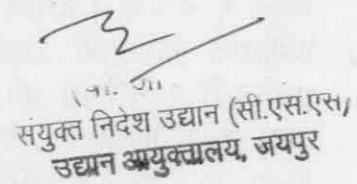 संयुक्त निदेश उद्यान (सी.एस.एस)
उद्यान आयुक्तालय, जयपुर